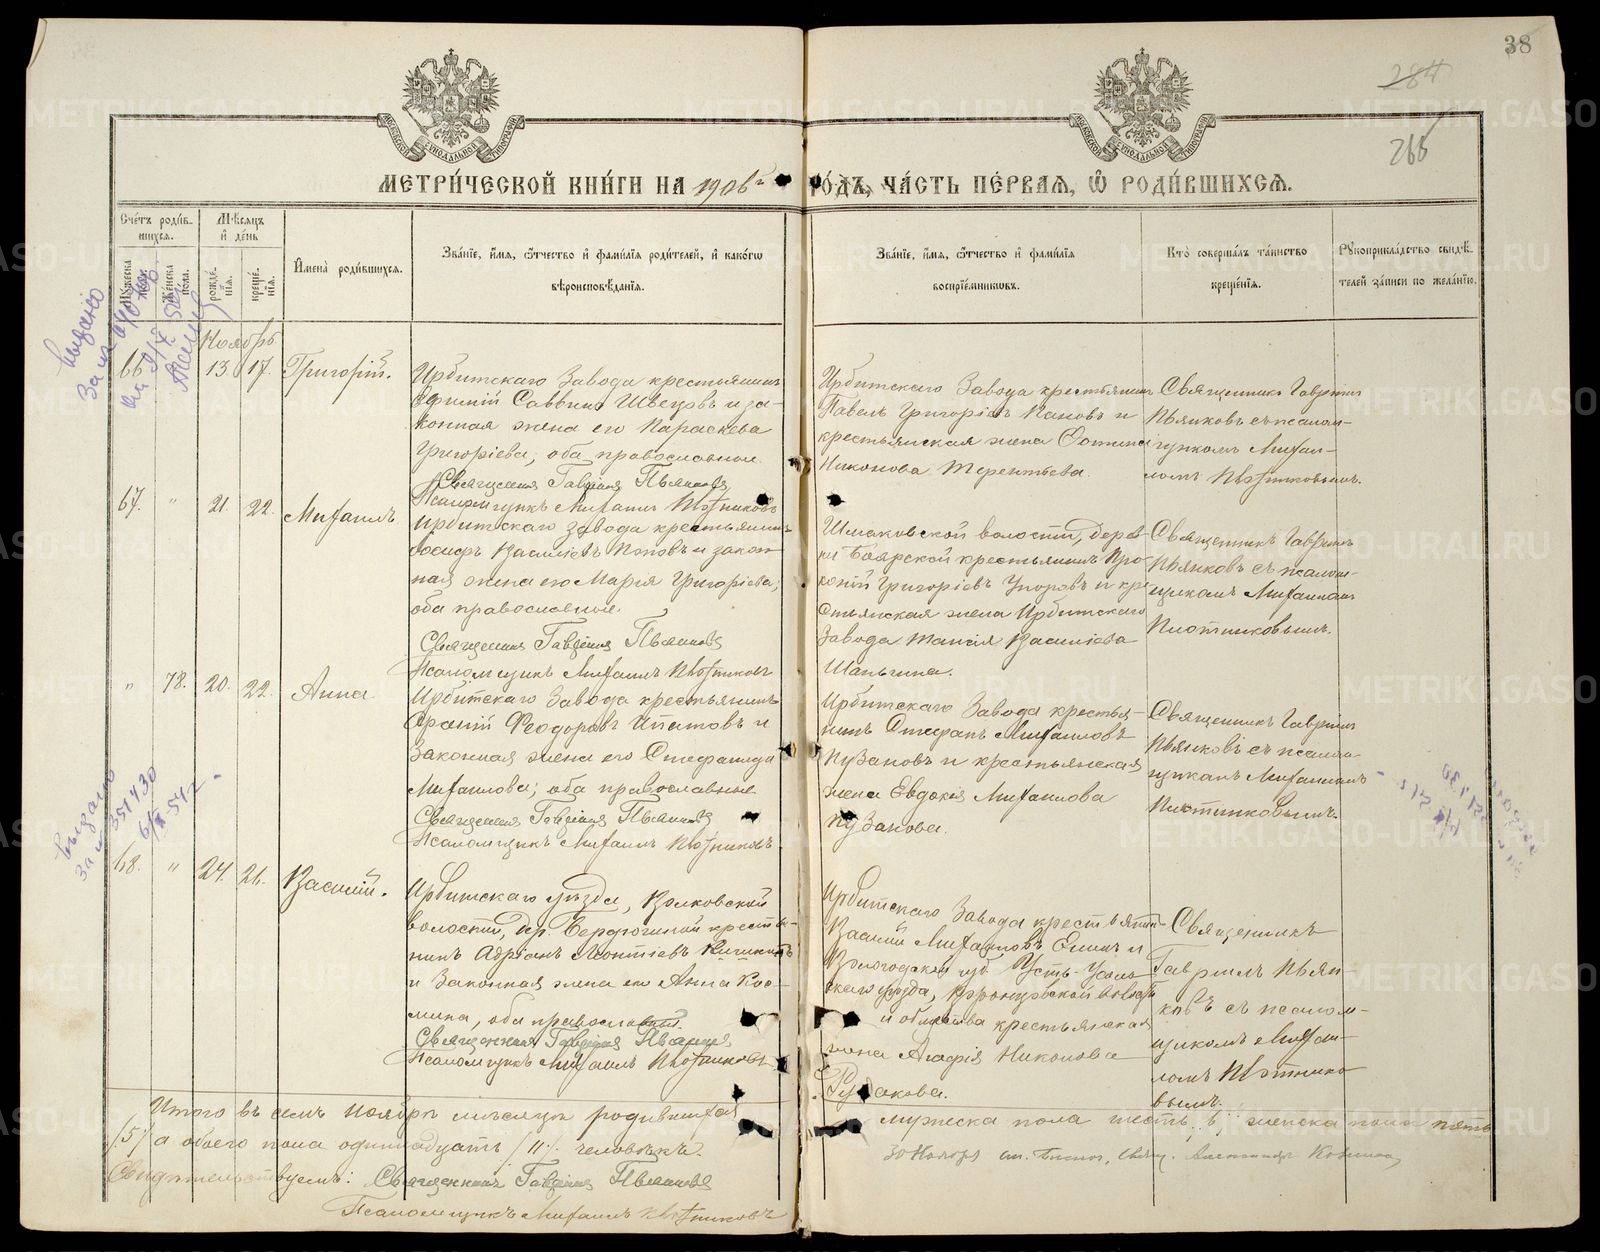 38
284
266
МЕТРИ́ЧЕСКОЙ КНИ́ГИ НА 1906й ГО́ДЪ, ЧА́СТЬ ПЕ́РВАЯ, Ѽ РОДИ́ВШИХСЯ.
Сче́тъ роди́вшихся.
Мѣ́сяцъ и҆ де́нь
Мꙋ́жеска пола.
Же́нска по́ла.
рожде́нїя.
креще́нїя.
И҆мена̀ роди́вшихся.
Зва́нїе, и҆́мя, ѻ҆́тчество и҆ фами́лїя роди́телей, и҆ како́гѡ вѣроисповѣ́данїя.
Зва́нїе, и҆́мя, ѻ҆́тчество и҆ фами́лїя воспрїе́мникѡвъ.
Кто̀ соверша́лъ та́инство креще́нїя.
Рꙋкоприкла́дство свидѣ́телей за́писи по жела́нїю.
Ноябрь
66
13.
17.
Григорій.
Ирбитскаго Завода крестьянинъ
Саввинъ Швецовъ и за-
конная жена его Параскева
Григоріева; оба православные
Священникъ Гавріилъ Пьянковъ
Псаломщикъ Михаилъ Плотниковъ
Ирбитскаго Завода крестьянинъ
Павелъ Григоріевъ Пановъ и
крестьянская жена Фотина
Никонова Терентьева.
Священникъ Гавріилъ
Пьянковъ съ псалом-
щикомъ Михаи-
ломъ Плотниковымъ.
67.
"
21.
22.
Михаилъ
Ирбитскаго завода крестьянинъ
Іосифъ Васильевъ Поповъ и закон-
ная жена его Марія Григоріева;
оба православные
Священникъ Гавріилъ Пьянковъ
Псаломщикъ Михаилъ Плотниковъ
Шмаковской волости, дерев-
ни Боярской крестьянинъ Про-
копій Григоріевъ Упоровъ и кре-
стьянская жена Ирбитскаго
Завода Таисія Васильева
Шаньгина.
Священникъ Гавріилъ
Пьянковъ съ псалом-
щикомъ Михаиломъ
Плотниковымъ.
"
78.
20.
22.
Анна
Ирбитскаго Завода крестьянинъ
Феодоровъ Ипатовъ и
Законная жена его Стефанида
Михаилова; оба православные
Священникъ Гавріилъ Пьянковъ
Псаломщикъ Михаилъ Плотниковъ.
Ирбитскаго Завода крестья-
нинъ Стефанъ Михаиловъ
Пузановъ и крестьянская
жена Евдокія Михаилова
Пузанова.
Священникъ Гавріилъ
Пьянковъ съ псалом-
щикомъ Михаиломъ
Плотниковымъ.
68.
"
24.
26.
Василій.
Ирбитскаго уѣзда, Волковской
волости, др. Бердюгиной крестья-
нинъ Адріанъ Леонтіевъ
и Законная жена его Анна Кос-
мина, оба православн.
Священникъ Гавріилъ Пьянковъ
Псаломщикъ Михаилъ Плотниковъ.
Ирбитскаго Завода крестьянинъ
Василій Михаиловъ Елинъ и
Вологодской губ. Усть-Сысоль-
скаго уѣзда, волости
и общества крестьянская
жена Агафія Никонова
Рудакова.
Священникъ
Гавріилъ Пьян-
ковъ съ псалом-
щикомъ Михаи-
ломъ Плотнико-
вымъ.
Итого въ семъ Ноябрѣ мѣсяцѣ родившихся мужеска пола шесть /6/, женска пола пять
/5/ а обоего пола одиннадцать /11/. человѣкъ.
Свидѣтельствуемъ: Священникъ Гавріилъ Пьянковъ
Псаломщикъ Михаилъ Плотниковъ